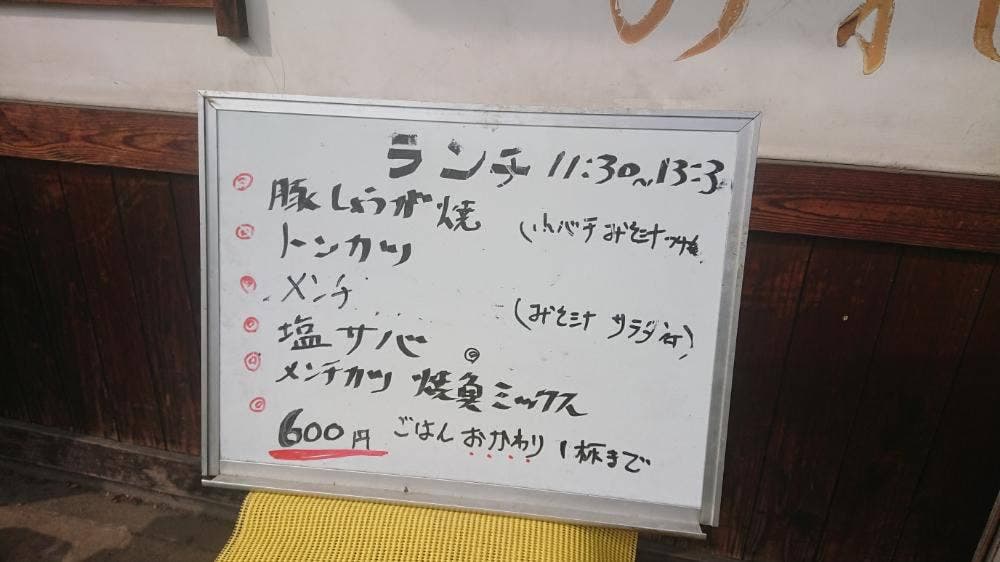 ランチ 11:30~13:3
豚しょうが焼
トンカツ
メンチ
(みそ汁 サラダ付)
塩サバ
メンチカツ 焼魚ミックス
600円 ごはんおかわり1杯まで